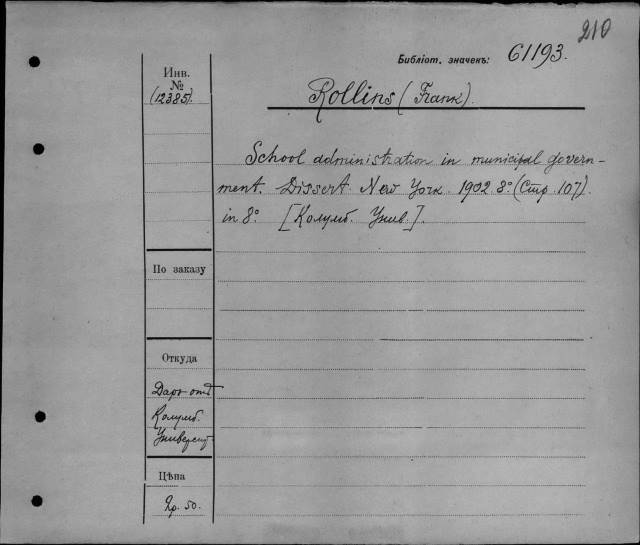 210
Библіот. значекъ: 61193.
Инв.
№
(12385).
Rollins (Frank).
School administration in municipal govern-
ment. Dissert. New York. 1902. 8° (Стр. 107).
in 8°. [Колумб. Унив.].
По заказу
Откуда
Даръ отъ
Колумб.
Университ
Цѣна
50.